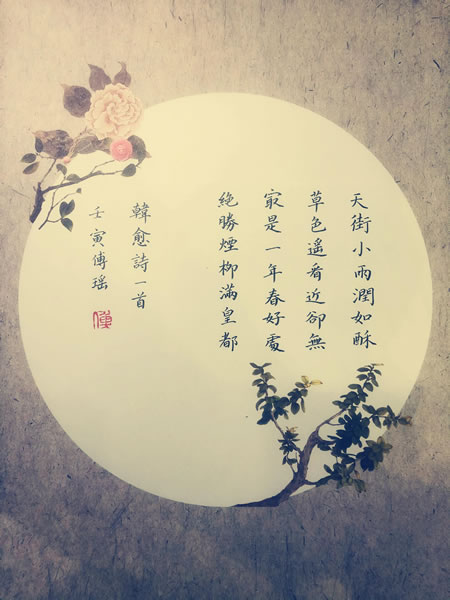 天街小雨潤如酥
草色遥看近卻無
冣是一年春好處
絶勝煙柳滿皇都
韓愈詩一首
壬寅傅瑶
傅